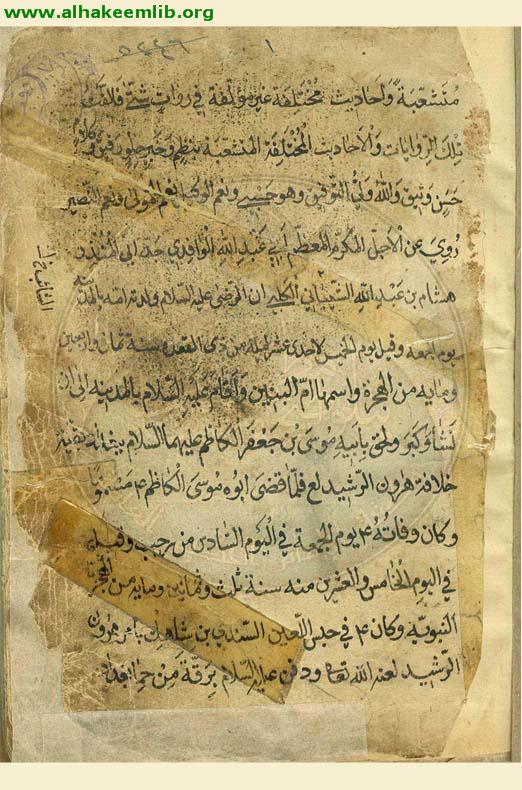 www.alhakeemlib.org
١
متشعبة واحاديث مختلفة غير مؤلفة في روات شتى فلفقت
تلك الروايات والاحاديث المختلفة المتشعبة بنظم وخبر وكلام
حسن وثيق والله ولي التوفيق وهو حسبي ونعم الوكيل نعم المولى ونعم النصير
رُوِيَ عن الاجل المكرم المعظم أبي عبد الله الواقدي حدثه ابي المنذر
هشام بن عبد الله الشيباني الكلبي ان الرضى عليه السلام ولدته امه بالمدينه
يوم الجمعه وقيل يوم الخميس لاحدى عشر ليله من ذى القعده سنة ثمان واربعين
ومايه من الهجرة واسمها امّ البنين وأقام عَليه السّلام بالمدينه الى ان
نشاؤ كبر ولحق بابيه موسى بن جعفر الكاظم عليهما السّلام بقية
خلافة هارون الرّشيد لع فلمّا قضى ابوه موسى الكاظم ع مسمومًا
وكان وفاته ع يوم الجمعة في اليوم السّادس من رجب وقيل
في اليوم الخامس والعشرين منه سنة ثلث وثمانين ومايه من الهجرة
النبويّه وكان ع في حبس اللّعين السّندي بن شاهك بامر هرون
الرّشيد لعنه الله تعا ودفن عليه السّلام برقة من حما بغداد